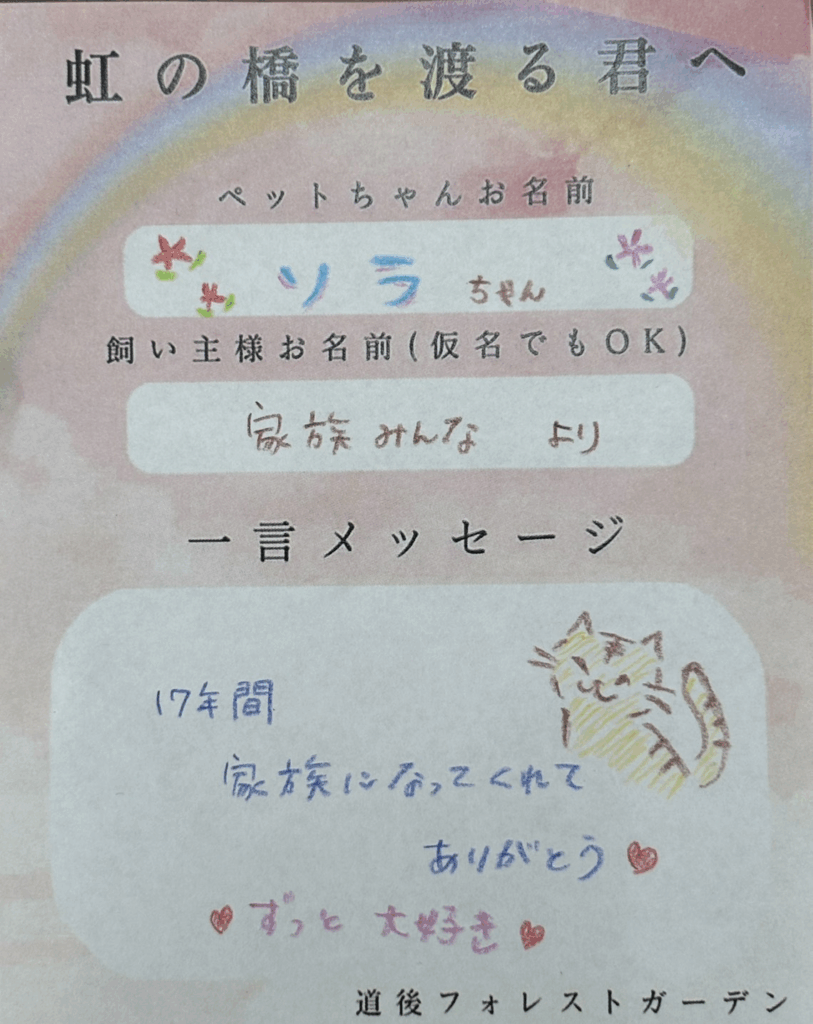 虹の橋を渡る君へ
ペットちゃんお名前
ソラ ちゃん
飼い主様お名前(仮名でもOK)
家族みんな より
一言メッセージ
17年間
家族になってくれて
ありがとう
ずっと 大好き
道後フォレストガーデン